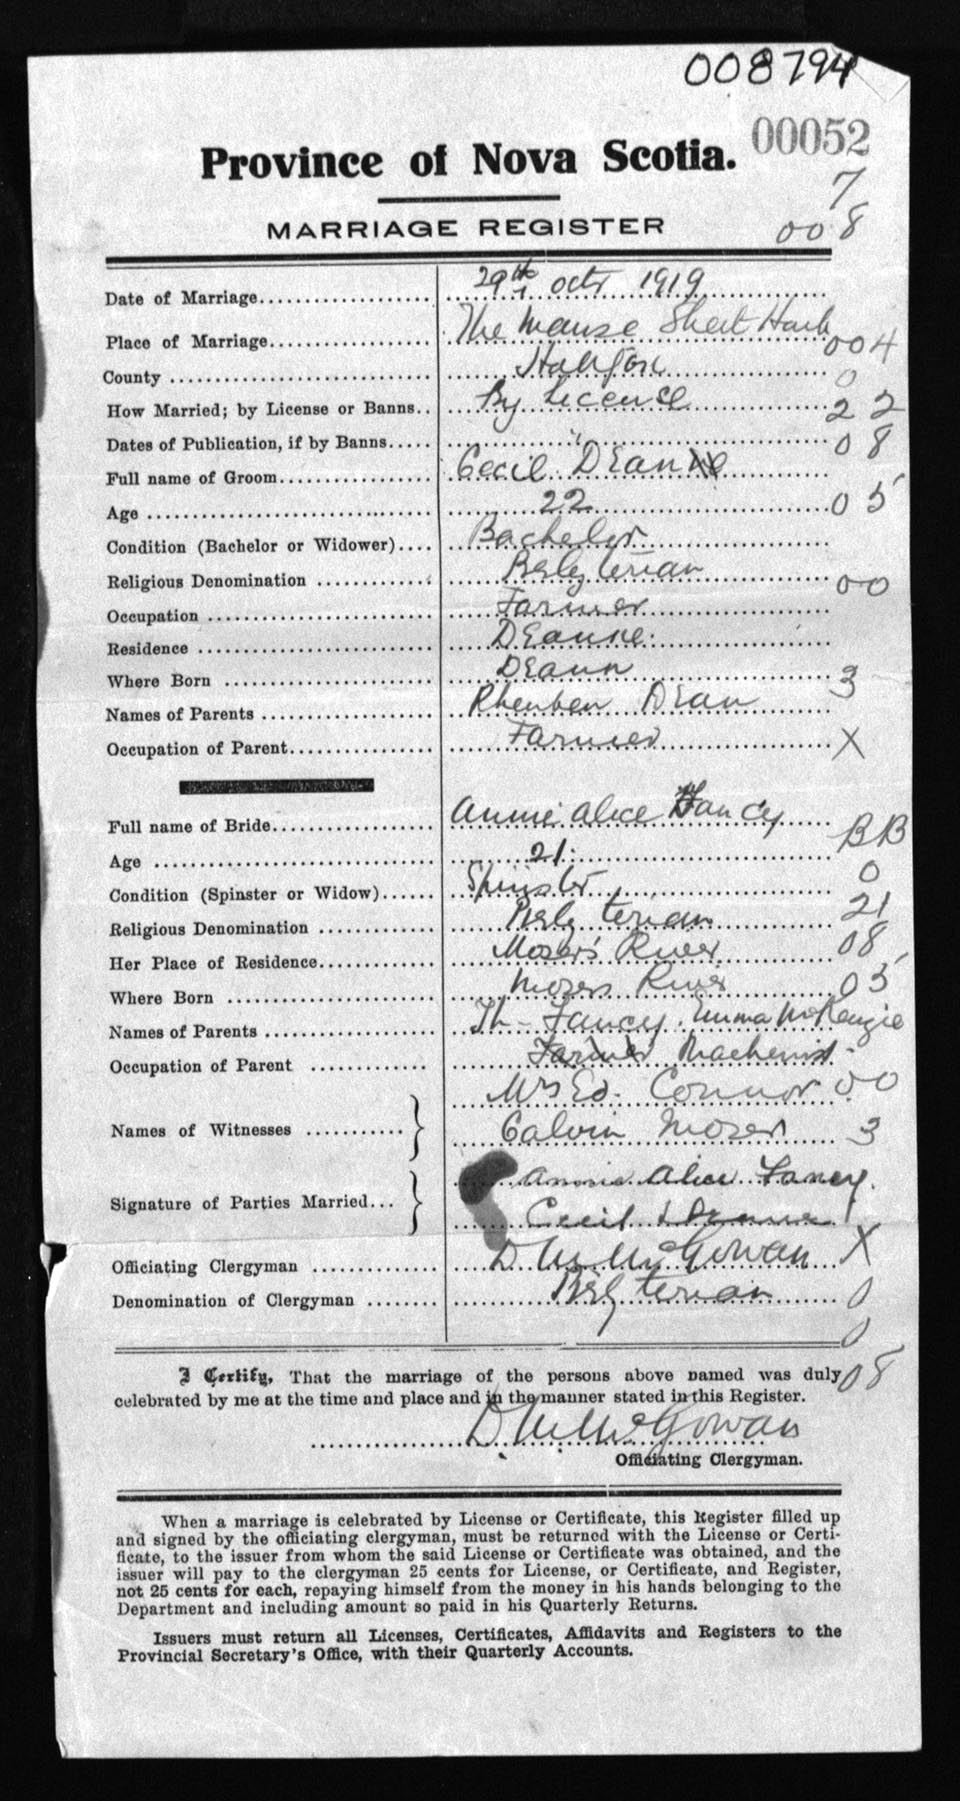 008794
00052
Province of Nova Scotia.
7
MARRIAGE REGISTER
008
Date of Marriage 29th Octr 1919
Place of Marriage The Manse Sheet Harb
004
County Halifax
0
How Married; by License or Banns By License
22
Dates of Publication, if by Banns "
08
Full name of Groom Cecil Dean
Age 22
05
Condition (Bachelor or Widower) Bachelor
Religious Denomination Presbyterian
00
Occupation Farmer
Residence Deanne
Where Born Deann
3
Names of Parents Rheuben Dean
Occupation of Parent Farmer
X
Full name of Bride Annie Alice Fancy
BB
Age 21
0
Condition (Spinster or Widow) Spinster
21
Religious Denomination Presbyterian
08
Her Place of Residence Moser's River
Where Born Mosers River
05
Names of Parents Th- Fancy. Emma McKenzie
Occupation of Parent Farmer Machenist
00
Names of Witnesses Mrs Ed. Connor
Calvin Moser
3
Signature of Parties Married Annie Alice Fancy.
Cecil Deanne
X
Officiating Clergyman D McGowan
Denomination of Clergyman Presbyterian
0
0
I Certify, That the marriage of the persons above named was duly
08
celebrated by me at the time and place and in the manner stated in this Register.
D McGowan
Officiating Clergyman.
When a marriage is celebrated by License or Certificate, this Register filled up
and signed by the officiating clergyman, must be returned with the License or Certi-
ficate, to the issuer from whom the said License or Certificate was obtained, and the
issuer will pay to the clergyman 25 cents for License, or Certificate, and Register,
not 25 cents for each, repaying himself from the money in his hands belonging to the
Department and including amount so paid in his Quarterly Returns.
Issuers must return all Licenses, Certificates, Affidavits and Registers to the
Provincial Secretary's Office, with their Quarterly Accounts.